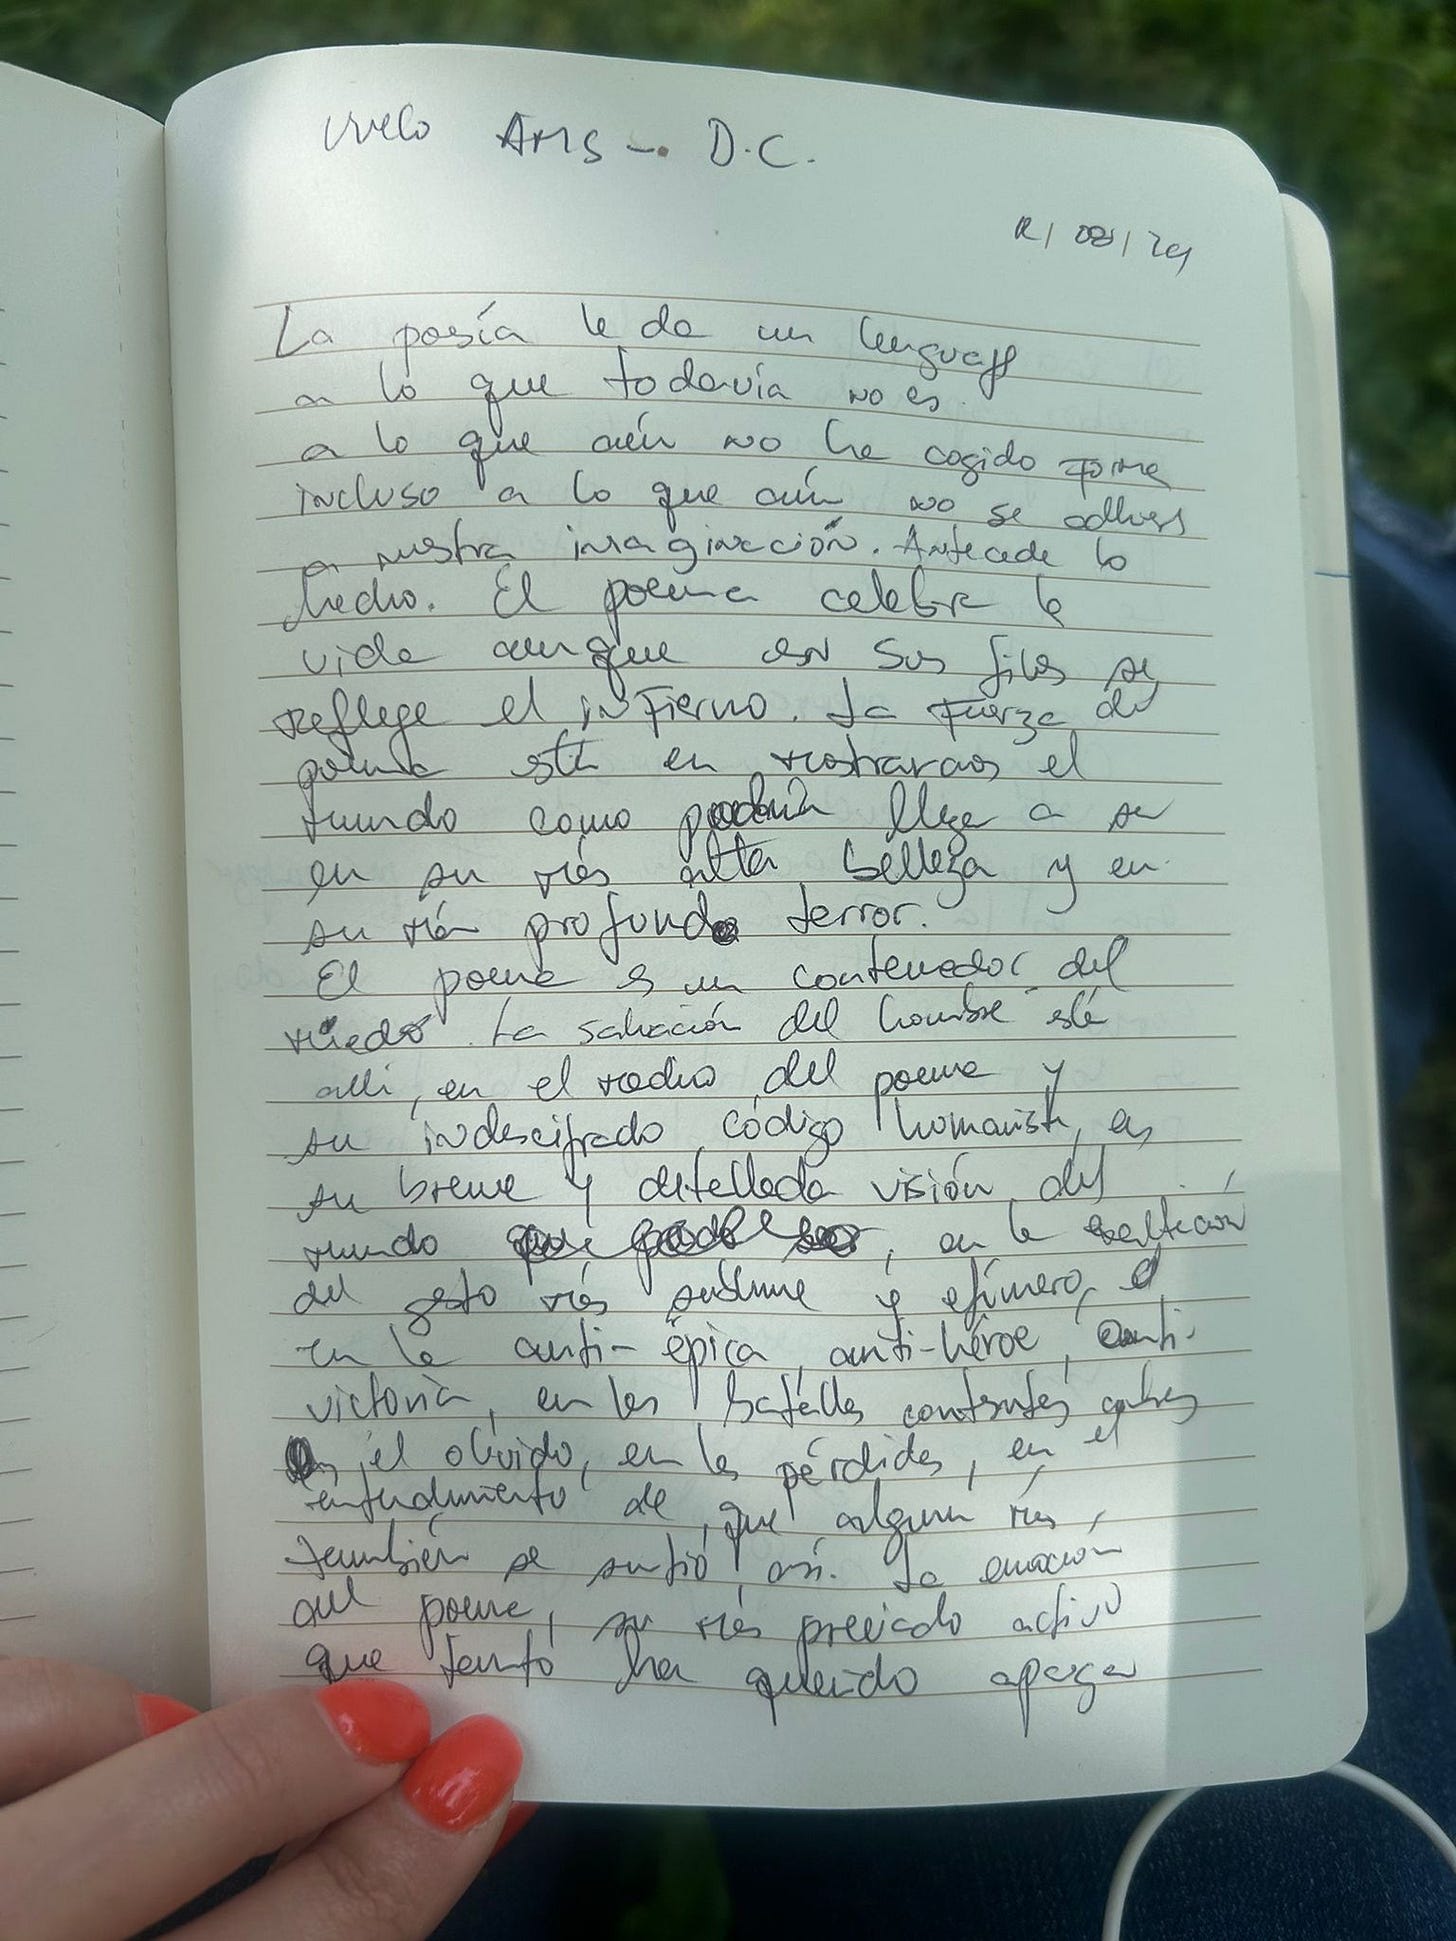 Vuelo AMS - D.C.
/ 08 / 24
La poesía le da un lenguaje
a lo que todavía no es
a lo que aún no ha cogido forma
incluso a lo que aún no se
a nuestra imaginación. Antecede lo
hecho. El poema celebra la
vida aunque en sus filos se
refleje el infierno. La fuerza del
poema está en mostrarnos el
mundo como podría llegar a ser
en su más alta belleza y en
su más profundo terror.
El poema es un contenedor del
miedo. La salvación del hombre está
allí, en el radio del poema y
su indescifrado código humanista, en
su breve y detallada visión del
mundo, en la
del gesto más sublime y efímero,
en la anti-épica, anti-héroe, anti-
victoria, en las batallas constantes
el olvido, en las pérdidas, en el
entendimiento de que alguien más,
también se sintió así. La emoción
del poema, su más preciado activo
que tanto ha querido apagar